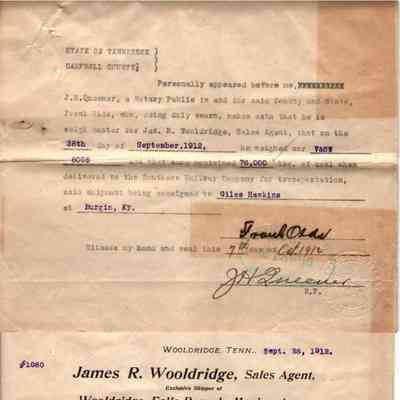 STATE OF TENNESSEE }
CAMPBELL COUNTY; }
Personally appeared before me,
J.H.Queener, a Notary Public in and for said County and State,
Frank Olds, who, being duly sworn, makes oath that he is
weigh master for Jas. R. Wooldridge, Sales Agent, that on the
28th day of September,1912, he weighed car
6095 and that same contained 76,000 lbs. of coal when
delivered to the Southern Railway Company for transportation,
said shipment being consigned to Giles Hawkins
at Burgin, Ky.
Frank Olds
Witness my hand and seal this 7th Oct 1912
J H Queener
N.P.
WOOLDRIDGE, TENN., Sept. 28, 1912.
#1080
James R. Wooldridge, Sales Agent,
Exclusive Shipper of